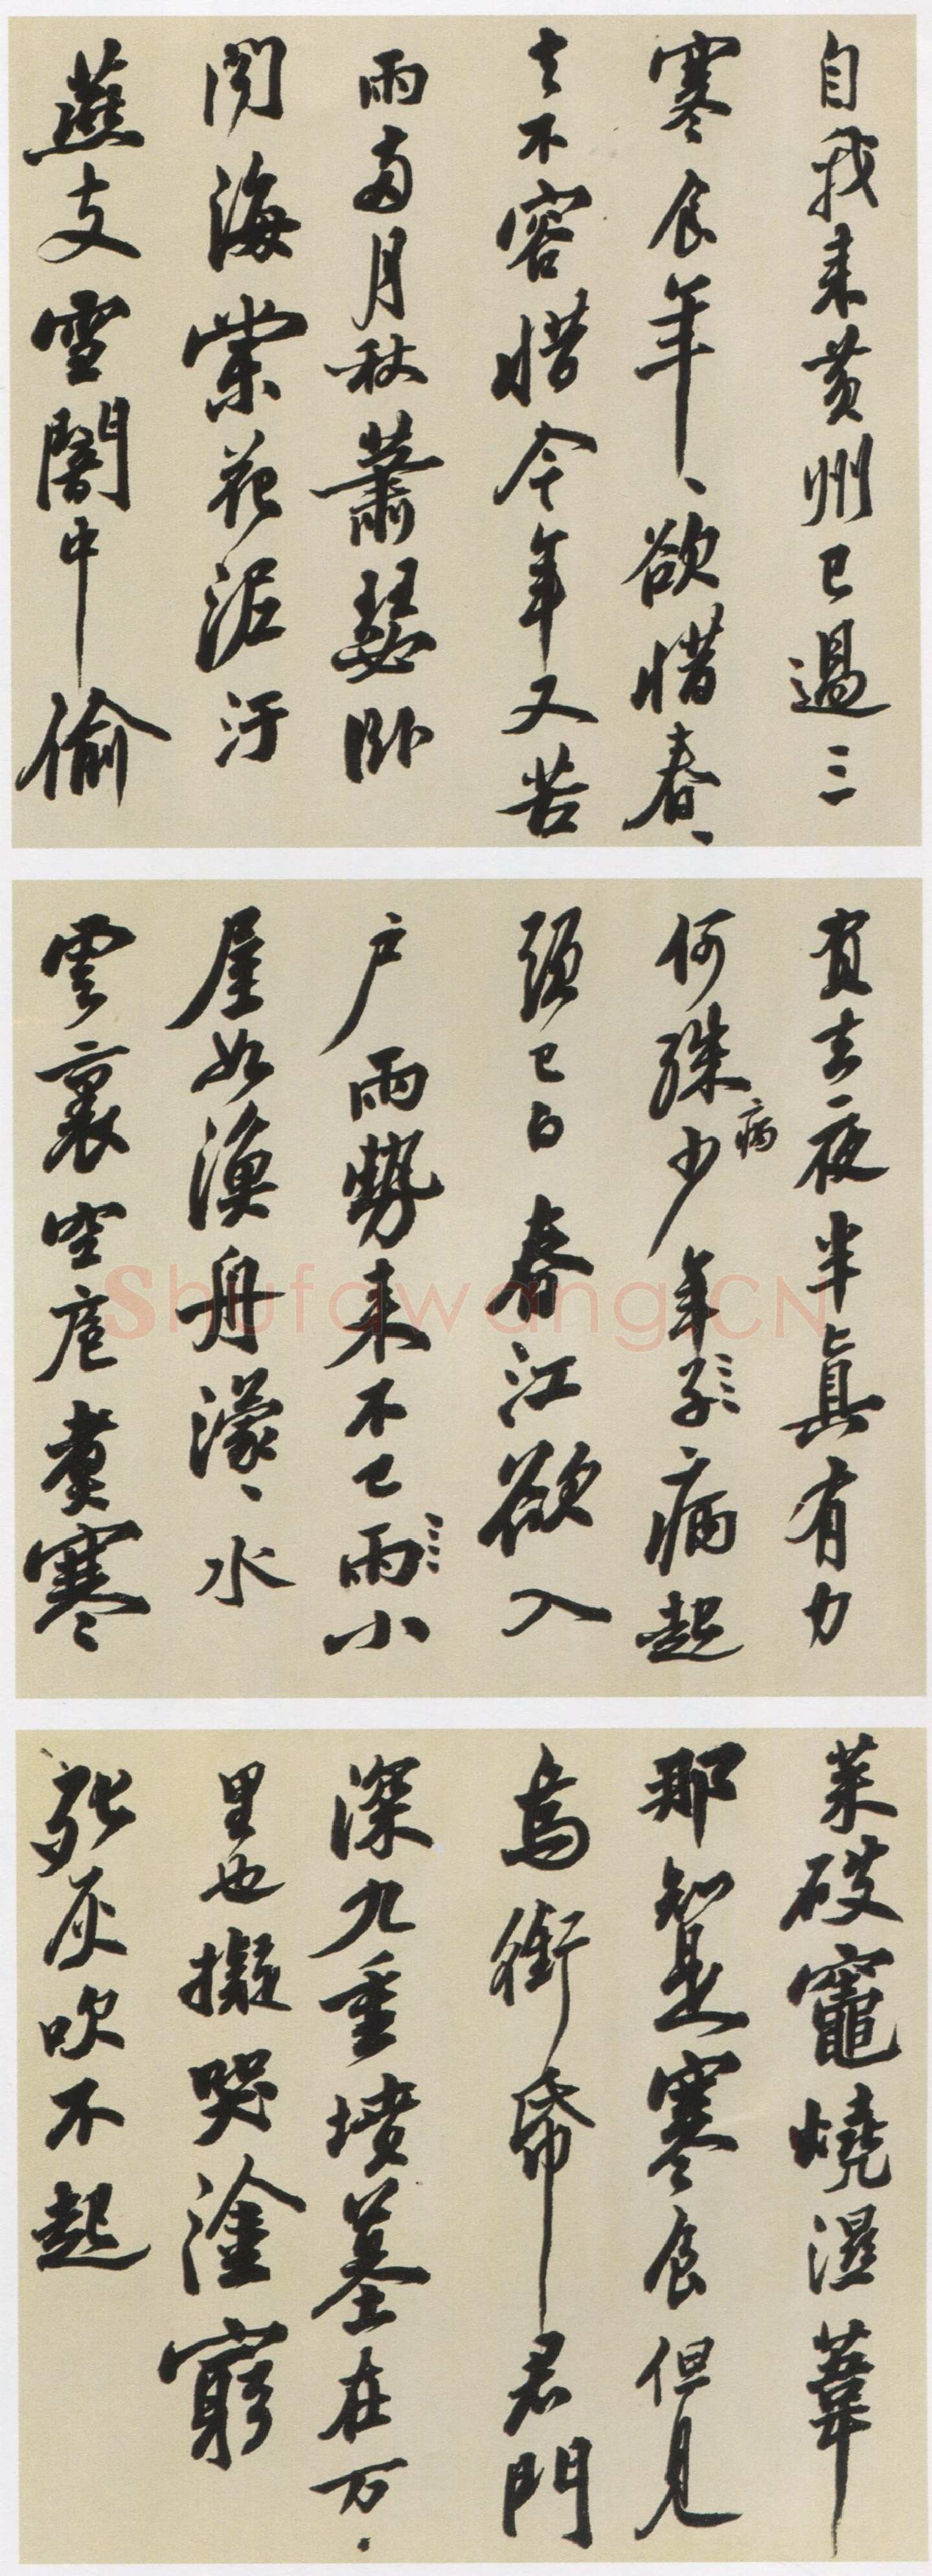 自我来黃州已過三
寒食年、欲惜春、
去不容惜今年又苦
雨兩月秋蕭瑟卧
聞海棠花泥汙
燕支雪闇中偷
負去夜半真有力
何殊少年子病起
病
頭已白春江欲入
户雨勢来不已雨小
屋如漁舟濛、水
雲裏空庖煮寒
菜破竈燒濕葦
那知是寒食但見
烏銜帋君門
深九重墳墓在万
里也擬哭塗窮
死灰吹不起
Shufawang.CN